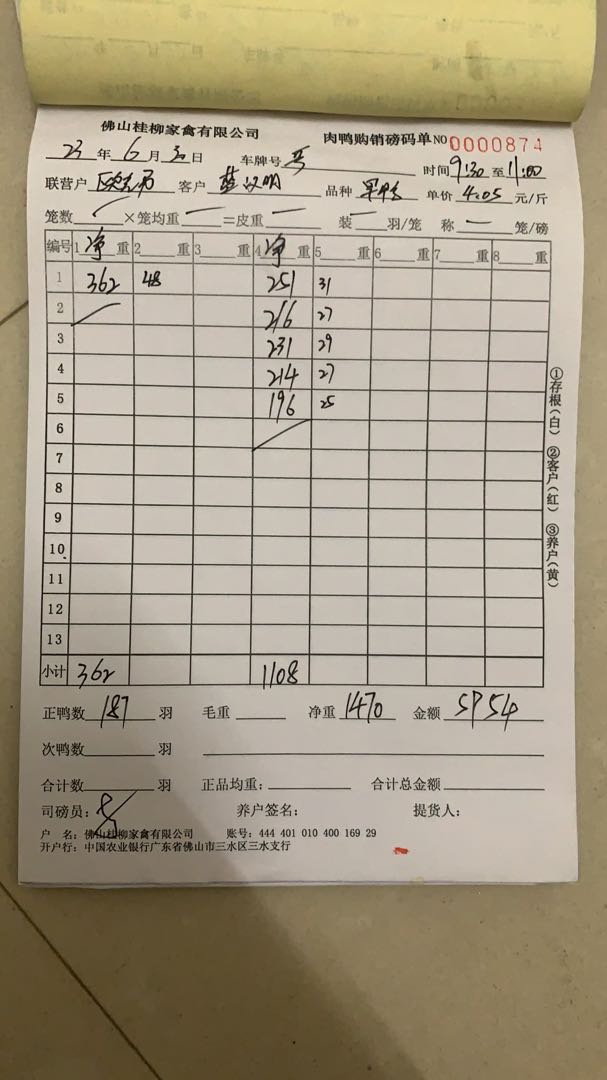 佛山桂柳家禽有限公司 肉鸭购销磅码单 NO 0000874
23 年 6 月 日 车牌号 时间 9:30 至 11:00
联营户 客户 品种 单价 4.05 元/斤
笼数 ×笼均重 =皮重 装 羽/笼 称 笼/磅
编号 1 净 重 2 重 3 重 4 净 重 5 重 6 重 7 重 8 重
1 362 48 251 31
2 216 27
3 231 29
4 214 27
5 196 25
6
7
8
9
10
11
12
13
小计 362 1108
正鸭数 187 羽 毛重 净重 1470 金额 5954
次鸭数 羽
合计数 羽 正品均重: 合计总金额
司磅员: 养户签名: 提货人:
户 名: 佛山桂柳家禽有限公司 账号: 444 401 010 400 169 29
开户行: 中国农业银行广东省佛山市三水区三水支行
①存根(白) ②客户(红) ③养户(黄)